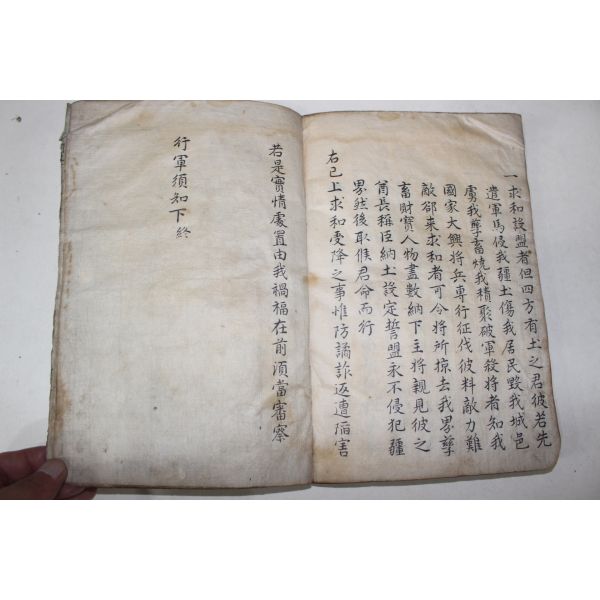 一求和設盟者但四方有土之君彼若先
遣軍馬侵我疆土傷我居民毀我城邑
虜我孳畜燒我積聚破軍殺將者知我
國家大興將兵專行征伐彼料敵力難
敵卻來求和者可令將所掠去我界孳
畜財寶人物盡數納下主將親見彼之
酋長稱臣納土設定誓盟永不侵犯疆
界然後取候君命而行
右已上求和受降之事惟防譎詐返遭陷害
若是實情處置由我禍福在前須當審察
行軍須知下終